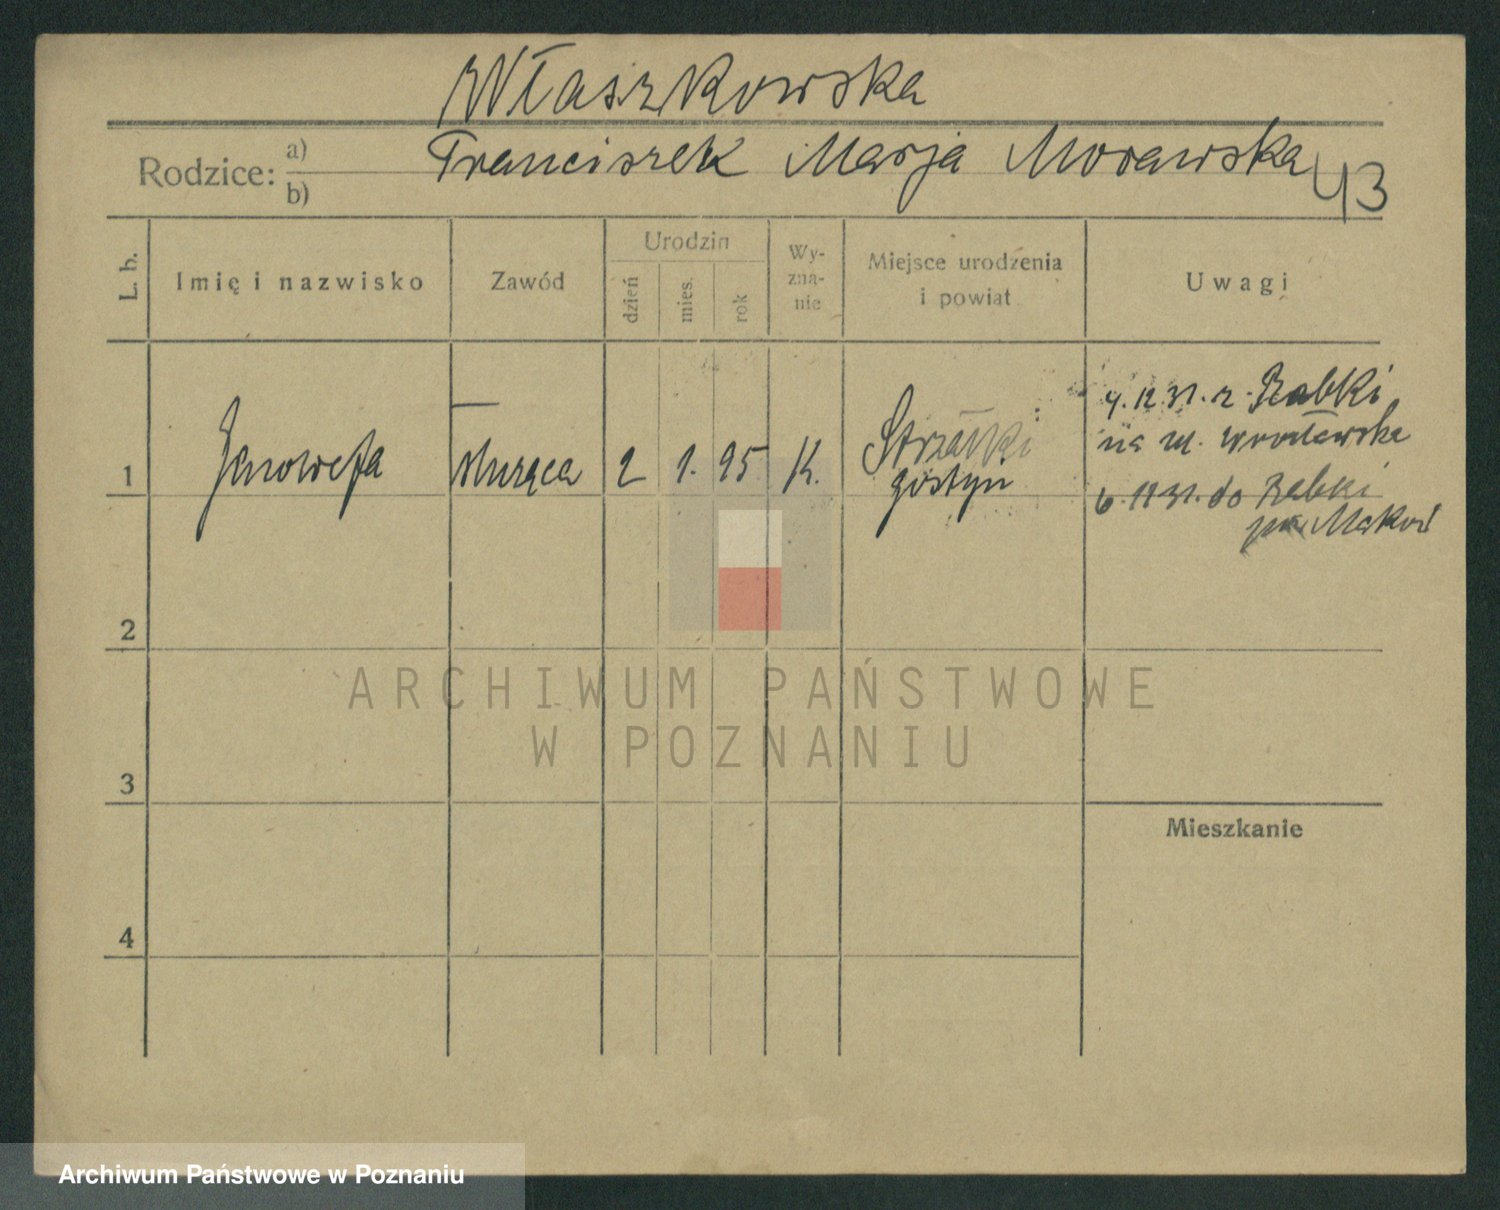 Właszkowska
Rodzice: a) b)
Franciszek Marja Morawska
43
L. b.
Imię i nazwisko
Zawód
Urodzin
dzień
mies.
rok
Wy-
zna-
nie
Miejsce urodzenia
i powiat
Uwagi
1
Janowefa
służąca
2
1.
95
K.
Strzałki
gostyń
4.12 31. z Rabki
na ul. wrocławska
6.12 31. do Rabki
pw. Maków
2
3
4
Mieszkanie
ARCHIWUM PAŃSTWOWE
W POZNANIU
Archiwum Państwowe w Poznaniu